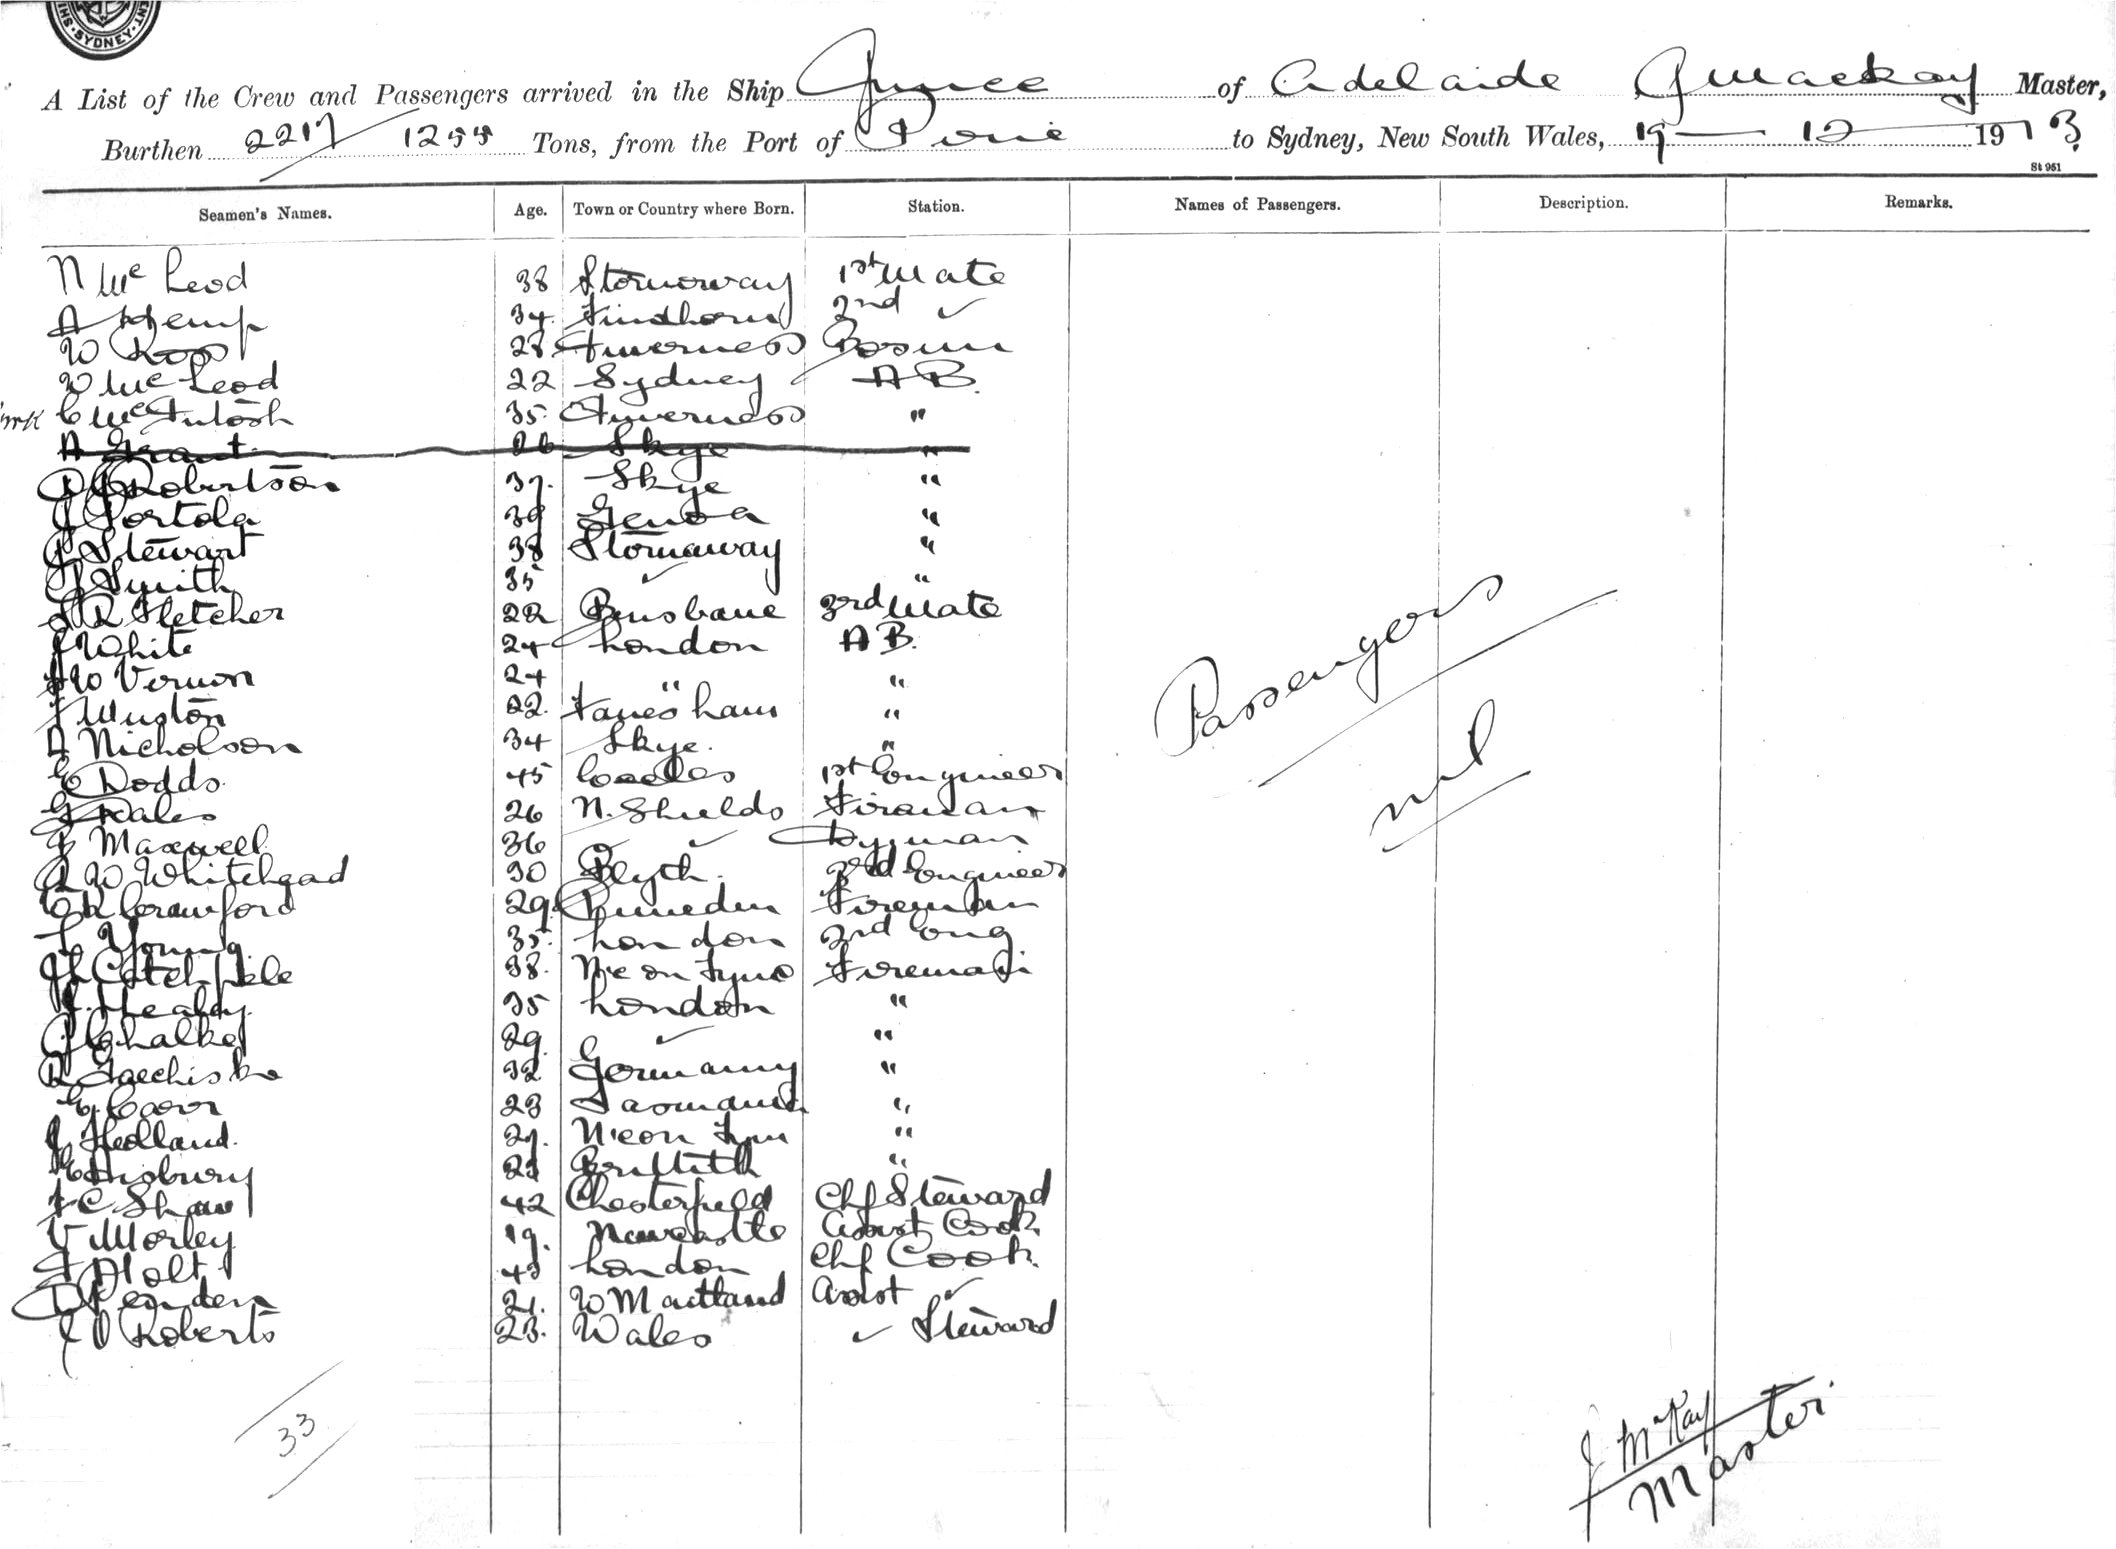 SYDNEY
A List of the Crew and Passengers arrived in the Ship of Adelaide J Mackay Master,
Burthen 2217 1255 Tons, from the Port of Pirie to Sydney, New South Wales, 19 — 12 1913
St 951
Seamen's Names. Age. Town or Country where Born. Station. Names of Passengers. Description. Remarks.
N McLeod 38 Stornoway 1st Mate
A Hemp 34 Findhorn 2nd ✓
W Ross 28 Inverness Bosun
W McLeod 22 Sydney AB
C McIntosh 35 Inverness "
A Grant 26 Skye "
Robertson 37 Skye "
J Portola 39 Genoa "
J Stewart 38 Stornaway "
J Smith 35 ✓ "
R Fletcher 22 Brisbane 3rd Mate
J White 24 London AB.
W Vernon 24 " "
J Winston 22 "
Nicholson 34 Skye. "
Dodds 45 1st Engineer
G Dales 26 N. Shields Fireman
J Maxwell 36 ✓
W Whitehead 30 Blyth. 2nd Engineer
Crawford 29 Dunedin Fireman
Young 35 London 3rd Eng
Catchpole 38 N'c on Tyne Fireman
J. Healey 35 London "
Chalke 29 ✓ "
32 Germany "
C Carr 23 Tasmania "
J Hedland 27 N'c on Tyne "
"
J C Shaw 42 Chesterfield Chf Steward
V Morley 19 Newcastle Assist Cook
F Holt London Chf Cook
21 W Maitland Assist ✓
Roberts 23 Wales ✓ Steward
Passengers
nil
33
J McKay
Master